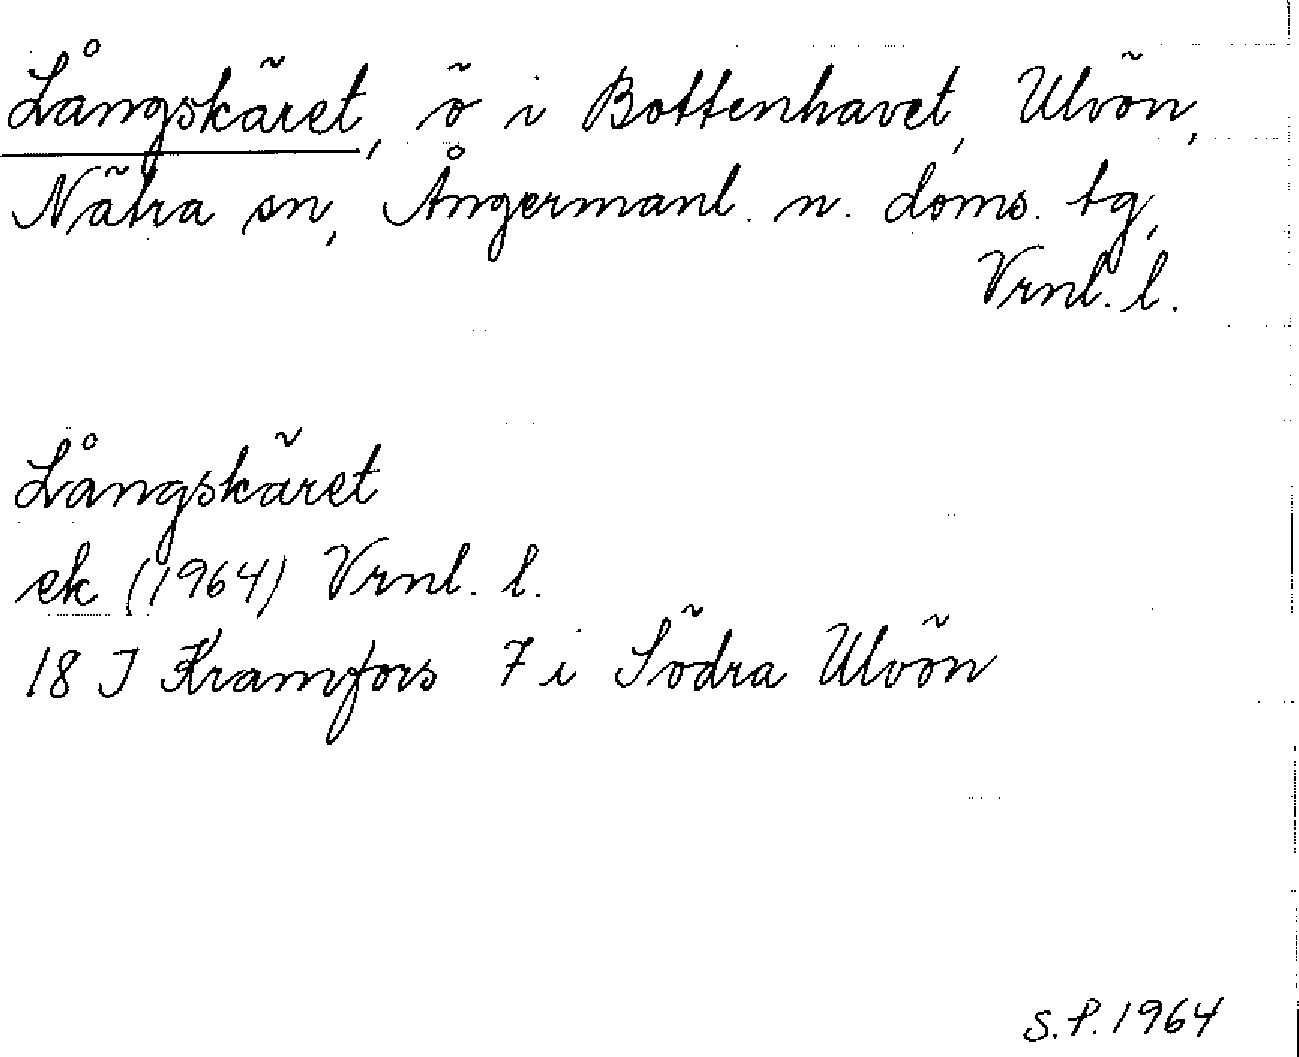 Långskäret, ö i Bottenhavet, Ulvön,
Nätra sn, Ångermanl. n. doms. tg,
Vrnl. l.
Långskäret
ek (1964) Vrnl. l.
18 J Kramfors 7 i Södra Ulvön
S.P. 1964